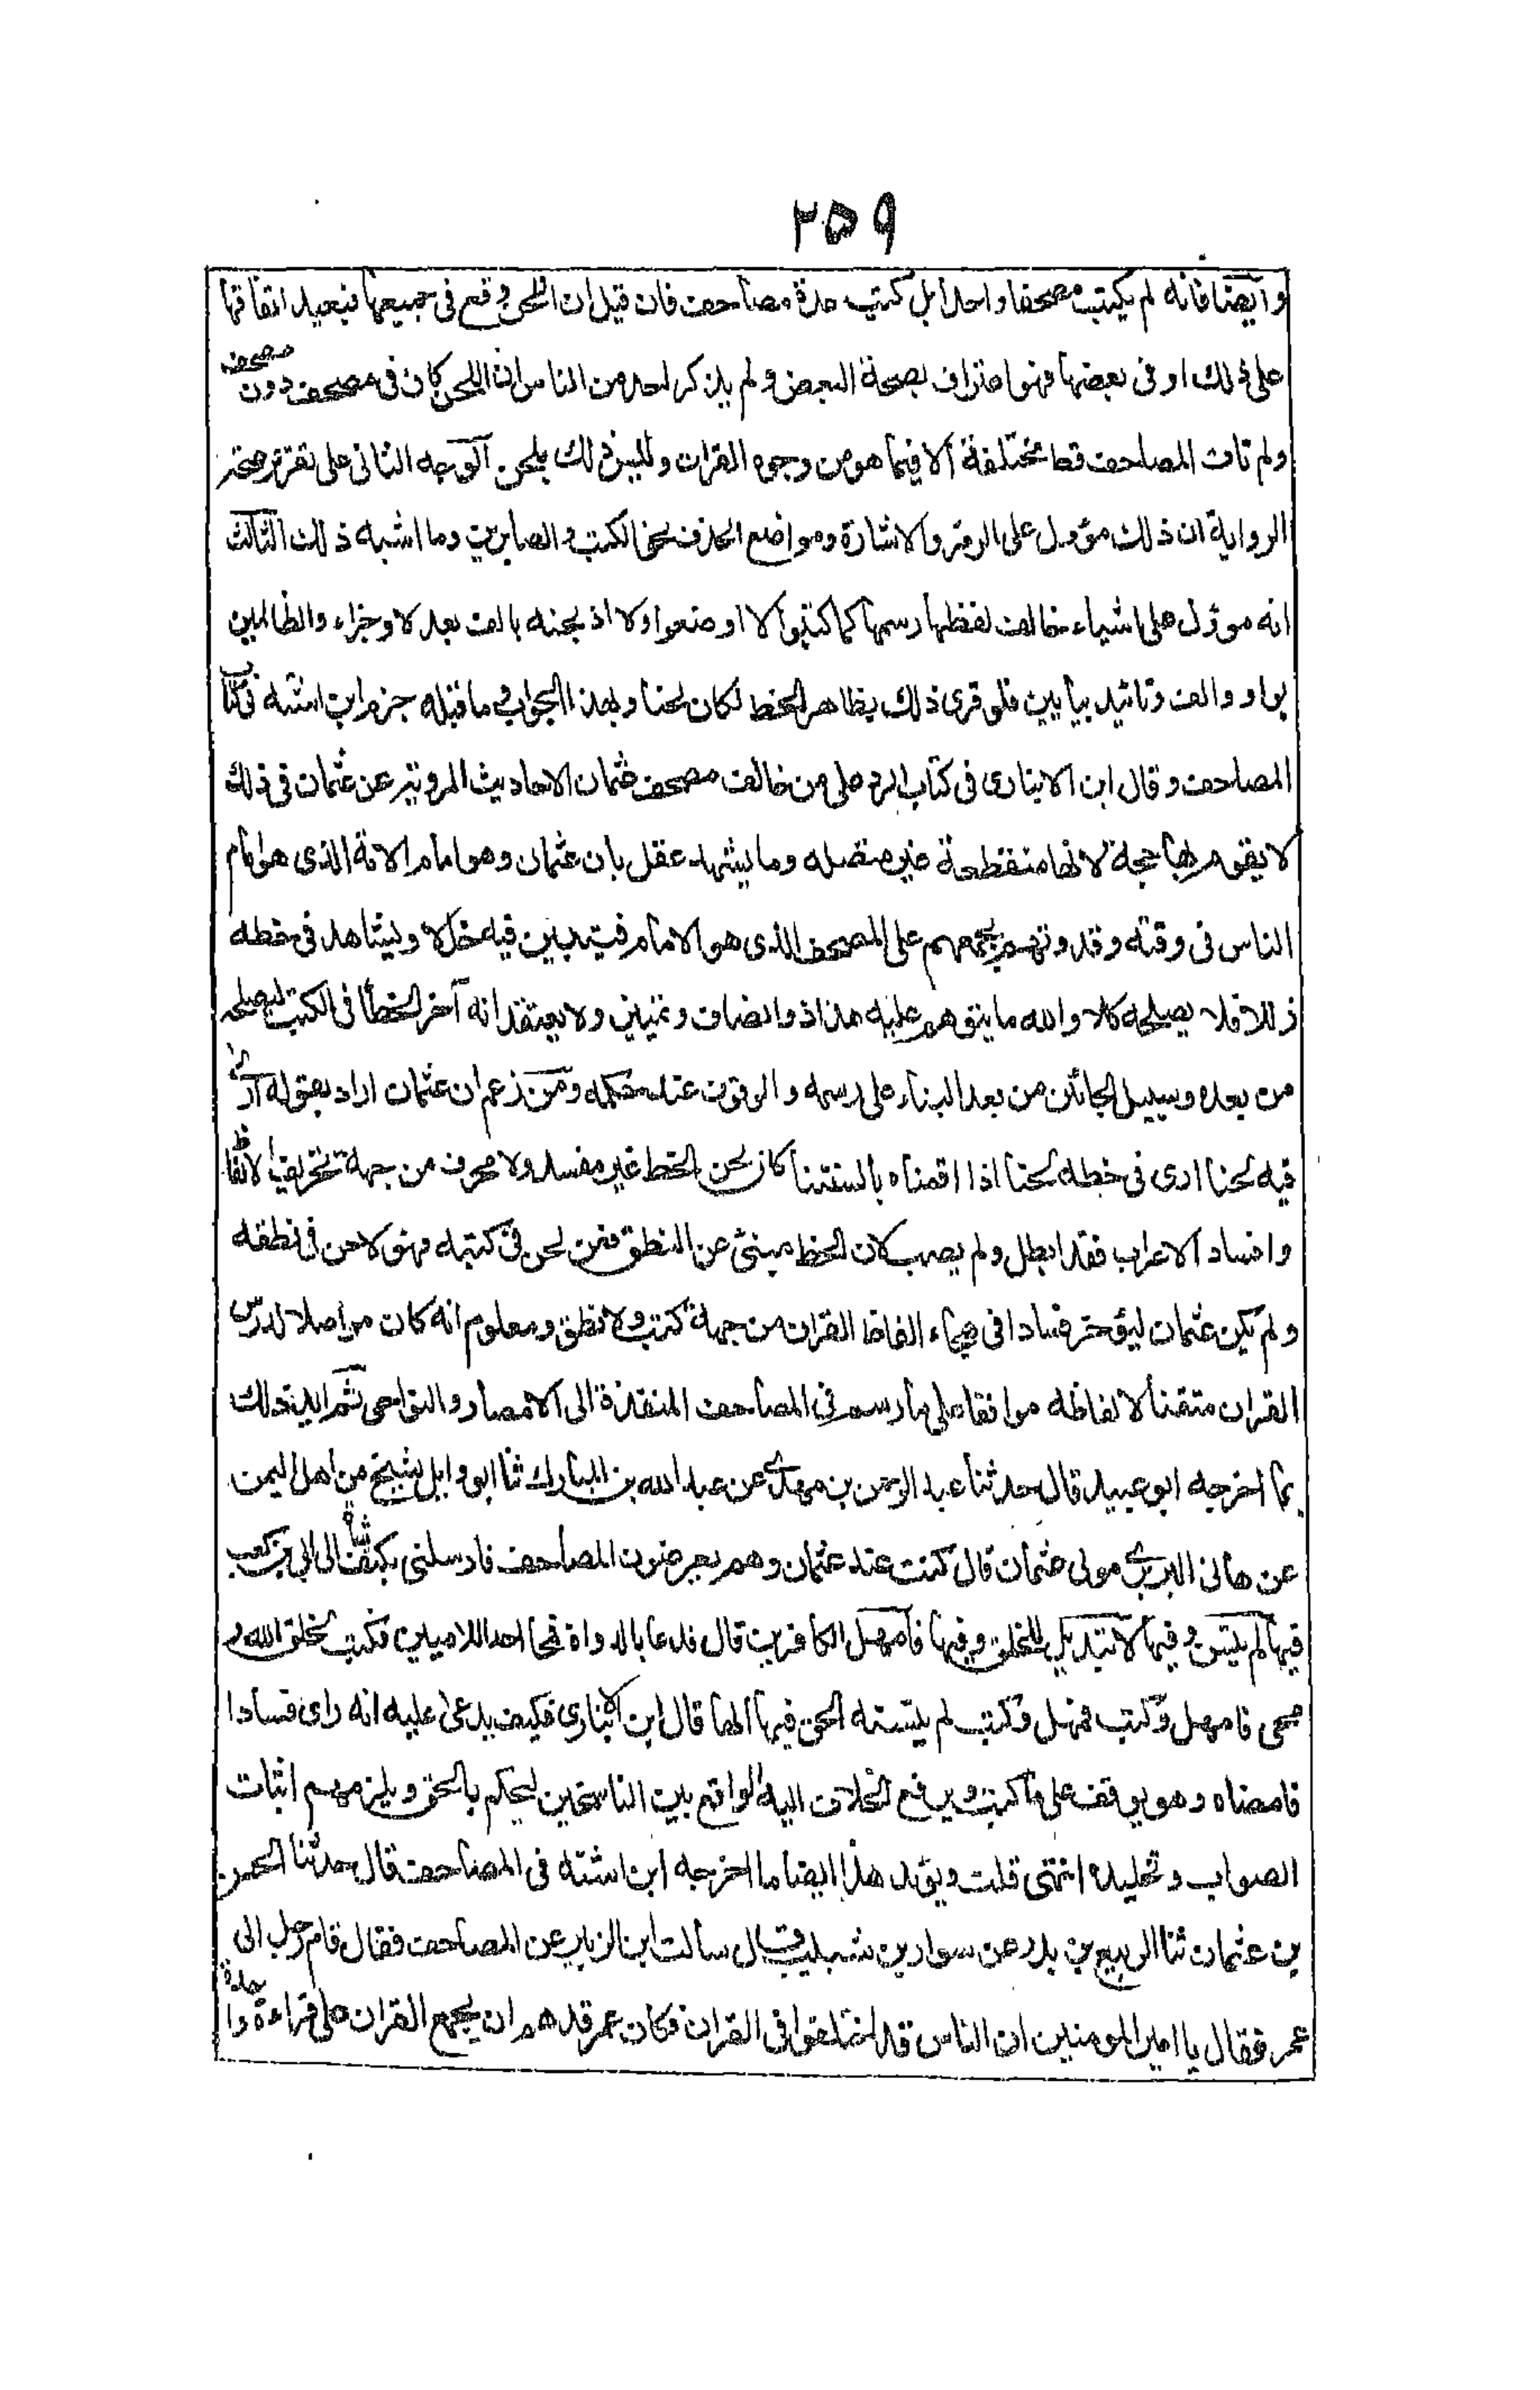 ٢٥٩
وايضا فانه لم يكتب مصحفا واحدا بل كتب عدة مصاحف فان قيل ان اللحن وقع فى جميعها فبعيد اتفاقها
على ذلك او فى بعضها فهو اعتراف بصحة البعض ولم يذكر احد من الناس ان اللحن كان فى مصحف دون مصحف
ولم تات المصاحف قط مختلفة الا فيما هو من وجوه القرات وليس ذلك بلحن الوجه الثانى على تقدير صحة
الرواية ان ذلك مؤول على الرمز والاشارة ومواضع الحذف نحو الكتب والصابرين وما اشبه ذلك الثالث
انه مؤول على اشياء خالف لفظها رسمها كما كتبوا لا اوضعوا ولا اذبحنه بالف بعد لا وجزاء والظالمين
بواو والف وبائيد بيايين فلو قرئ ذلك بظاهر الخط لكان لحنا وبهذا الجواب وما قبله جزم ابن اشته فى كتاب
المصاحف وقال ابن الانبارى فى كتاب الرد على من خالف مصحف عثمان الاحاديث المروية عن عثمان فى ذلك
لا يقوم بها حجة لانها منقطعة غير متصله وما يشهد عقل بان عثمان وهو امام الامة الذى هو امام
الناس فى وقته وقدوتهم يجمعهم على المصحف الذى هو الامام فيتبين فيه خللا ويشاهد فى خطه
زللا فلا يصلحه كلا والله ما يتوهم عليه هذا ذو انصاف وتمييز ولا يعتقد انه آخر الخطأ فى الكتب ليصلحه
من بعده وسبيل الجائين من بعد البناء على رسمه والوقوف عند حكمه ومن زعم ان عثمان اراد بقوله ارى
فيه لحنا ارى فى خطه لحنا اذا اقمناه بالسنتنا كان لحن الخط غير مفسد ولا محرف من جهة تحريف الالفاظ
وافساد الاعراب فقد ابطل ولم يصب لان الخط مبنئ عن النطق فمن لحن فى كتبه فهو لاحن فى نطقه
ولم يكن عثمان ليؤخر فسادا فى هجاء الفاظ القران من جهة كتب ولا نطق ومعلوم انه كان مواصلا لدرس
القران متقنا لالفاظه موافقا على ما رسم فى المصاحف المنفذة الى الامصار والنواحى ثم ايد ذلك
بما اخرجه ابو عبيد قال حدثنا عبد الرحمن بن مهدى عن عبد الله بن المبارك ثنا ابو وايل شيخ من اهل اليمن
عن هانى البربرى مولى عثمان قال كنت عند عثمان وهم يعرضون المصاحف فارسلنى بكتف شاة الى ابى بن كعب
فيها لم يتسن وفيها لا تبديل للخلق وفيها فامهل الكافرين قال فدعا بالدواة فمحا احد اللامين فكتب لخلق الله و
محى فامهل وكتب فمهل وكتب لم يتسنه الحق فيها الها قال ابن الانبارى فكيف يدعى عليه انه راى فسادا
فامضاه وهو يوقف على ما كتب ويرفع الخلاف اليه الواقع بين الناسخين ليحكم بالحق ويلزمهم اثبات
الصواب وتخليده انتهى قلت ويؤيد هذا ايضا ما اخرجه ابن اشته فى المصاحف قال حدثنا الحسن
بن عثمان ثنا الربيع بن بدر عن سوار بن شبيب قال سالت ابن الزبير عن المصاحف فقال قام رجل الى
عمر فقال يا امير المومنين ان الناس قد اختلفوا فى القران فكان عمر قد هم ان يجمع القران على قراءة واحدة